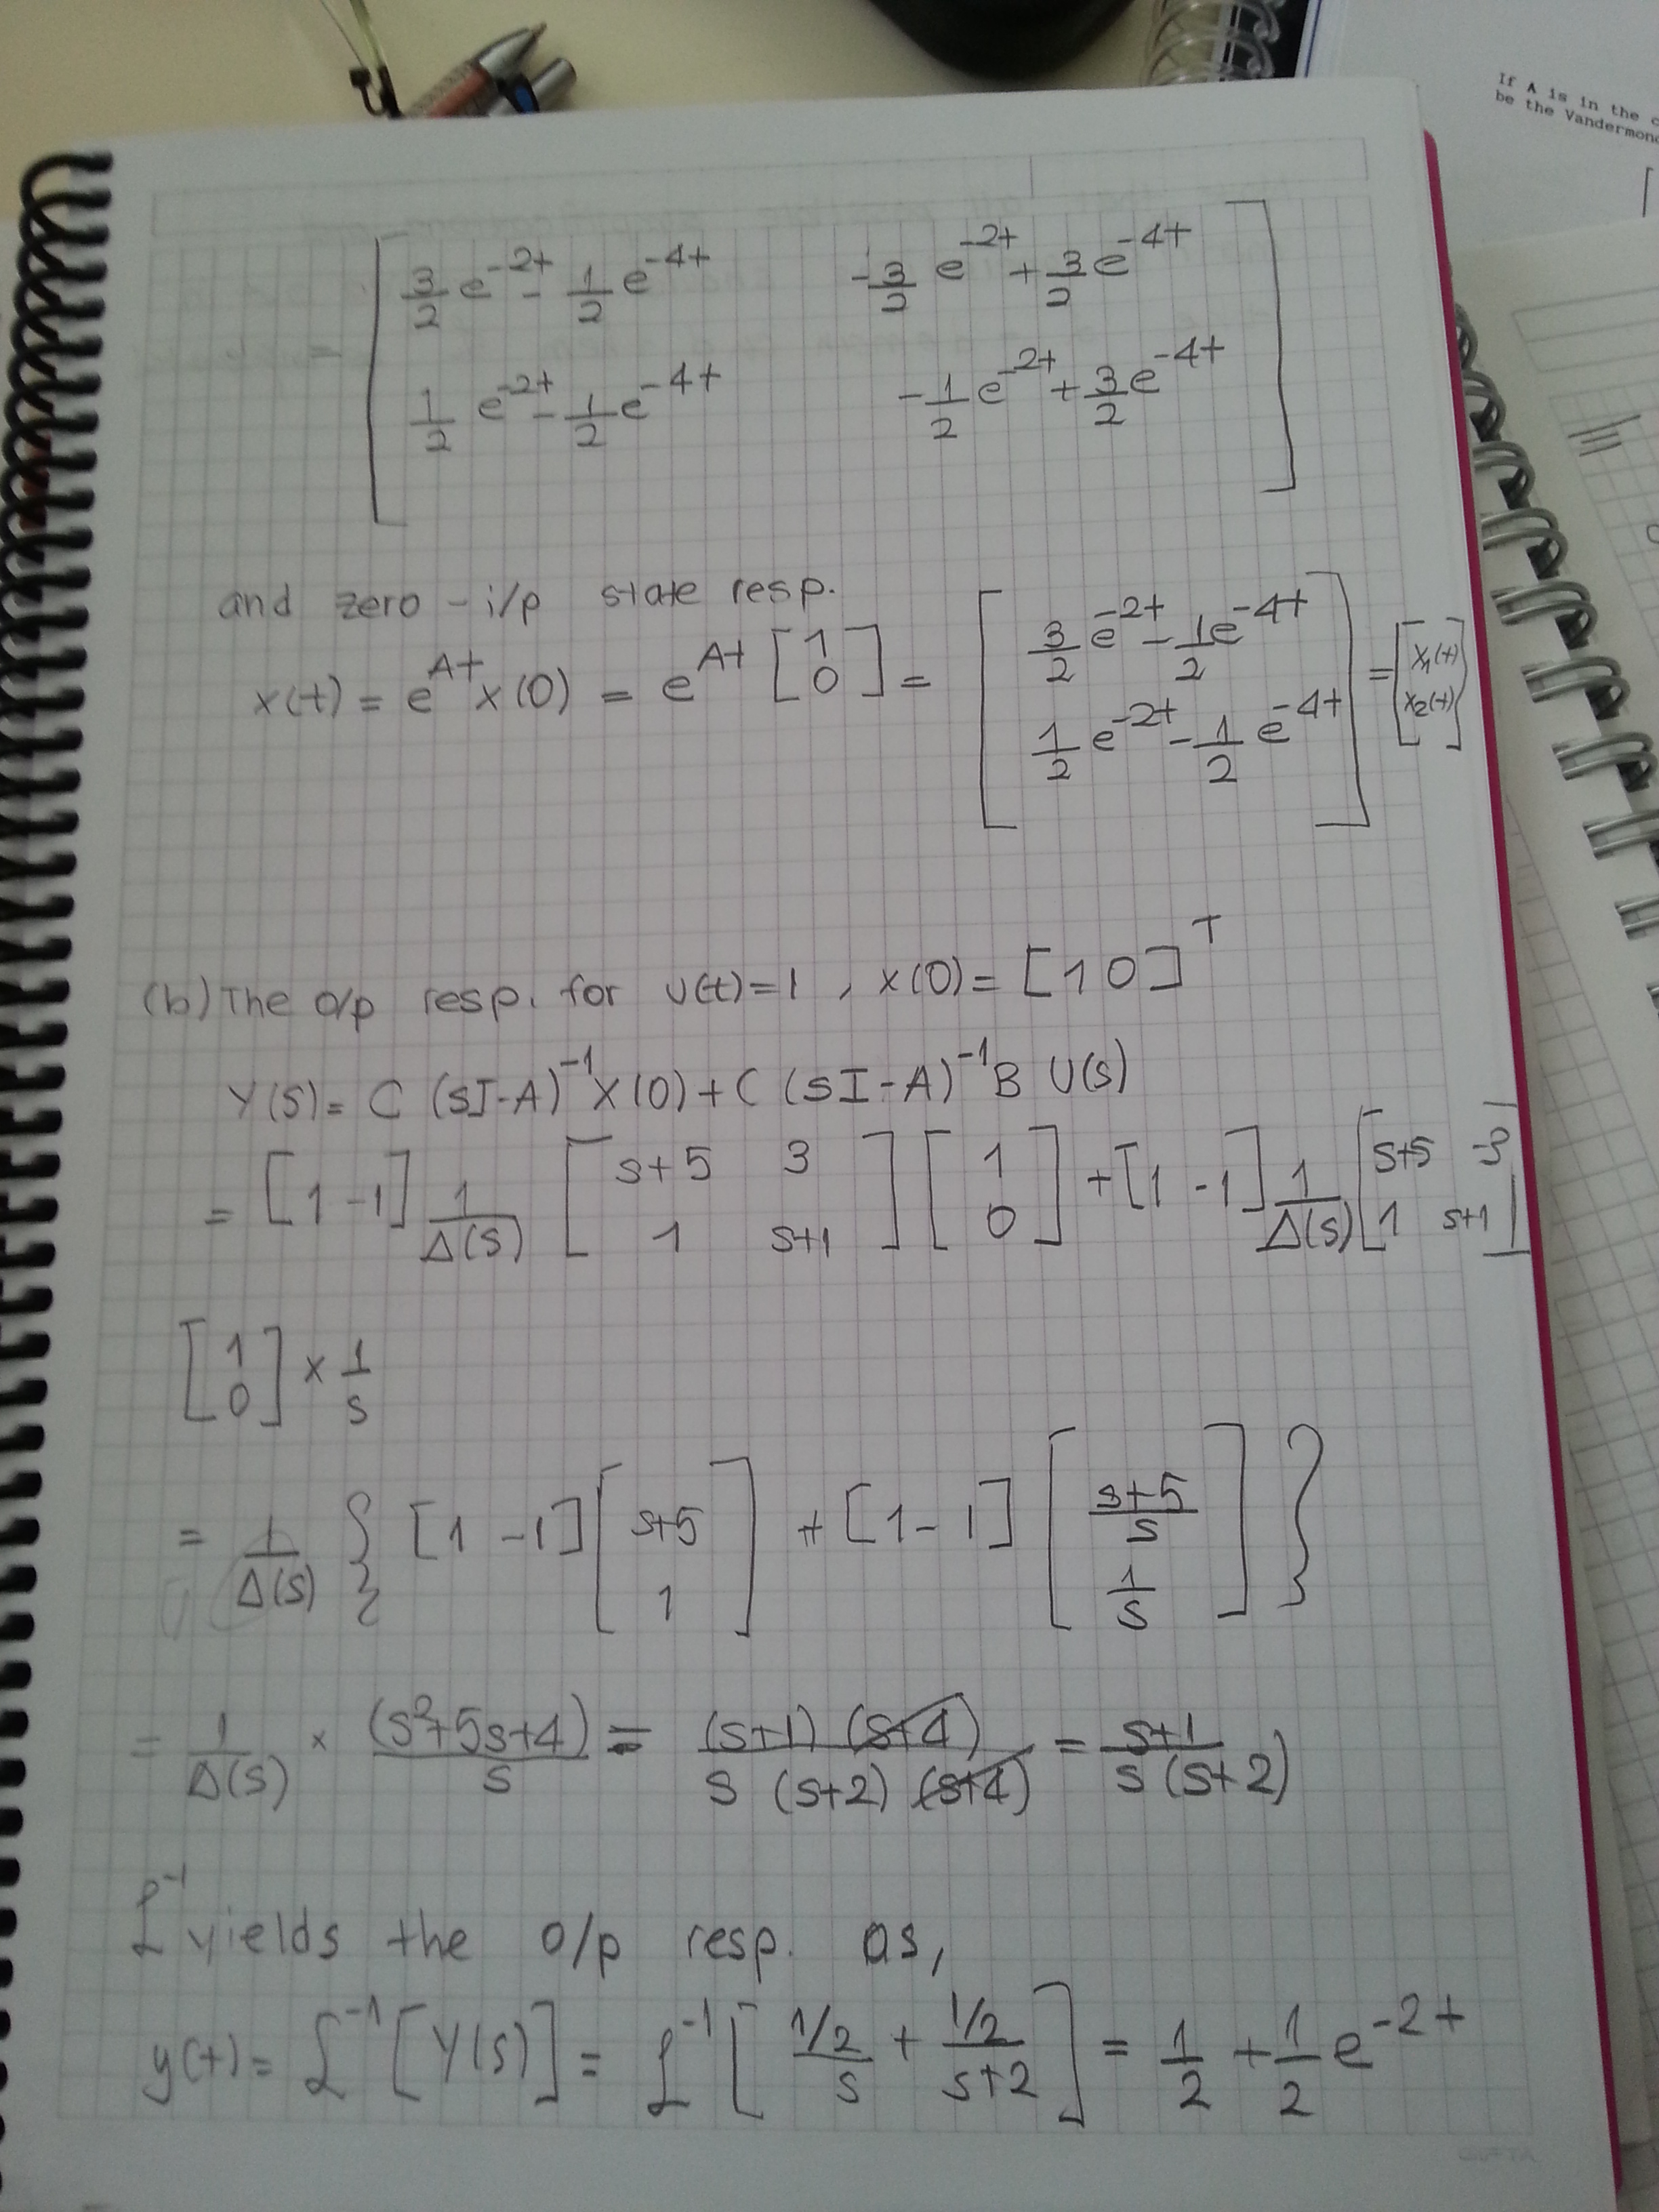 If A is in the
be the Vandermon
[ 3/2 e^-2t - 1/2 e^-4t   -3/2 e^-2t + 3/2 e^-4t
1/2 e^-2t - 1/2 e^-4t   -1/2 e^-2t + 3/2 e^-4t ]
and zero - i/p state resp.
x(t) = e^At x(0) = e^At [1 0] = [ 3/2 e^-2t - 1/2 e^-4t
1/2 e^-2t - 1/2 e^-4t ] = [ x1(t) x2(t) ]
(b) The o/p resp. for u(t)=1 , x(0)= [1 0]^T
Y(s) = C (sI-A)^-1 X(0) + C (sI-A)^-1 B U(s)
= [1 -1] 1/Δ(s) [ s+5 3
1 s+1 ] [1 0] + [1 -1] 1/Δ(s) [ s+5 -3
1 s+1 ]
[1 0] × 1/s
= 1/Δ(s) { [1 -1] [ s+5
1 ] + [1 -1] [ s+5/s
1/s ] }
= 1/Δ(s) × (s²+5s+4)/s = (s+1) (s+4) / s (s+2) (s+4) = s+1 / s (s+2)
£^-1 yields the o/p resp. as,
y(t) = £^-1 [Y(s)] = £^-1 [ 1/2/s + 1/2/s+2 ] = 1/2 + 1/2 e^-2t